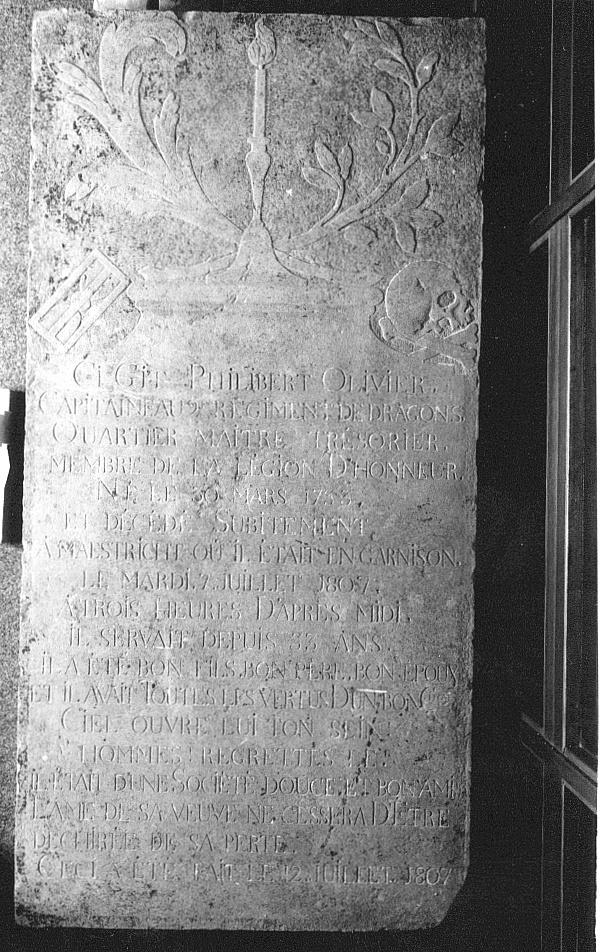 CI GIT PHILIBERT OLIVIER.
CAPITAINE AU 2e REGIMENT DE DRAGONS
QUARTIER MAITRE TRÉSORIER.
MEMBRE DE LA LEGION D'HONNEUR.
NÉ LE 30 MARS
ET DÉCÉDÉ SUBITEMENT
A MAESTRICHT OÙ IL ÉTAIT EN GARNISON.
LE MARDI. 7. JUILLET 1807.
A TROIS HEURES D'APRÈS MIDI.
IL SERVAIT DEPUIS 33 ANS.
IL A ÉTÉ BON FILS. BON PÈRE. BON EPOUX
ET IL AVAIT TOUTES LES VERTUS D'UN BON
CIEL OUVRE LUI TON SEIN
HOMMES! REGRETTES LE.
IL ETAIT D'UNE SOCIÉTÉ DOUCE. ET BON AMI
L'AME DE SA VEUVE NE CESSERA D'ETRE
DECHIRÉE DE SA PERTE.
CECI A ÉTÉ FAIT LE 12. JUILLET. 1807